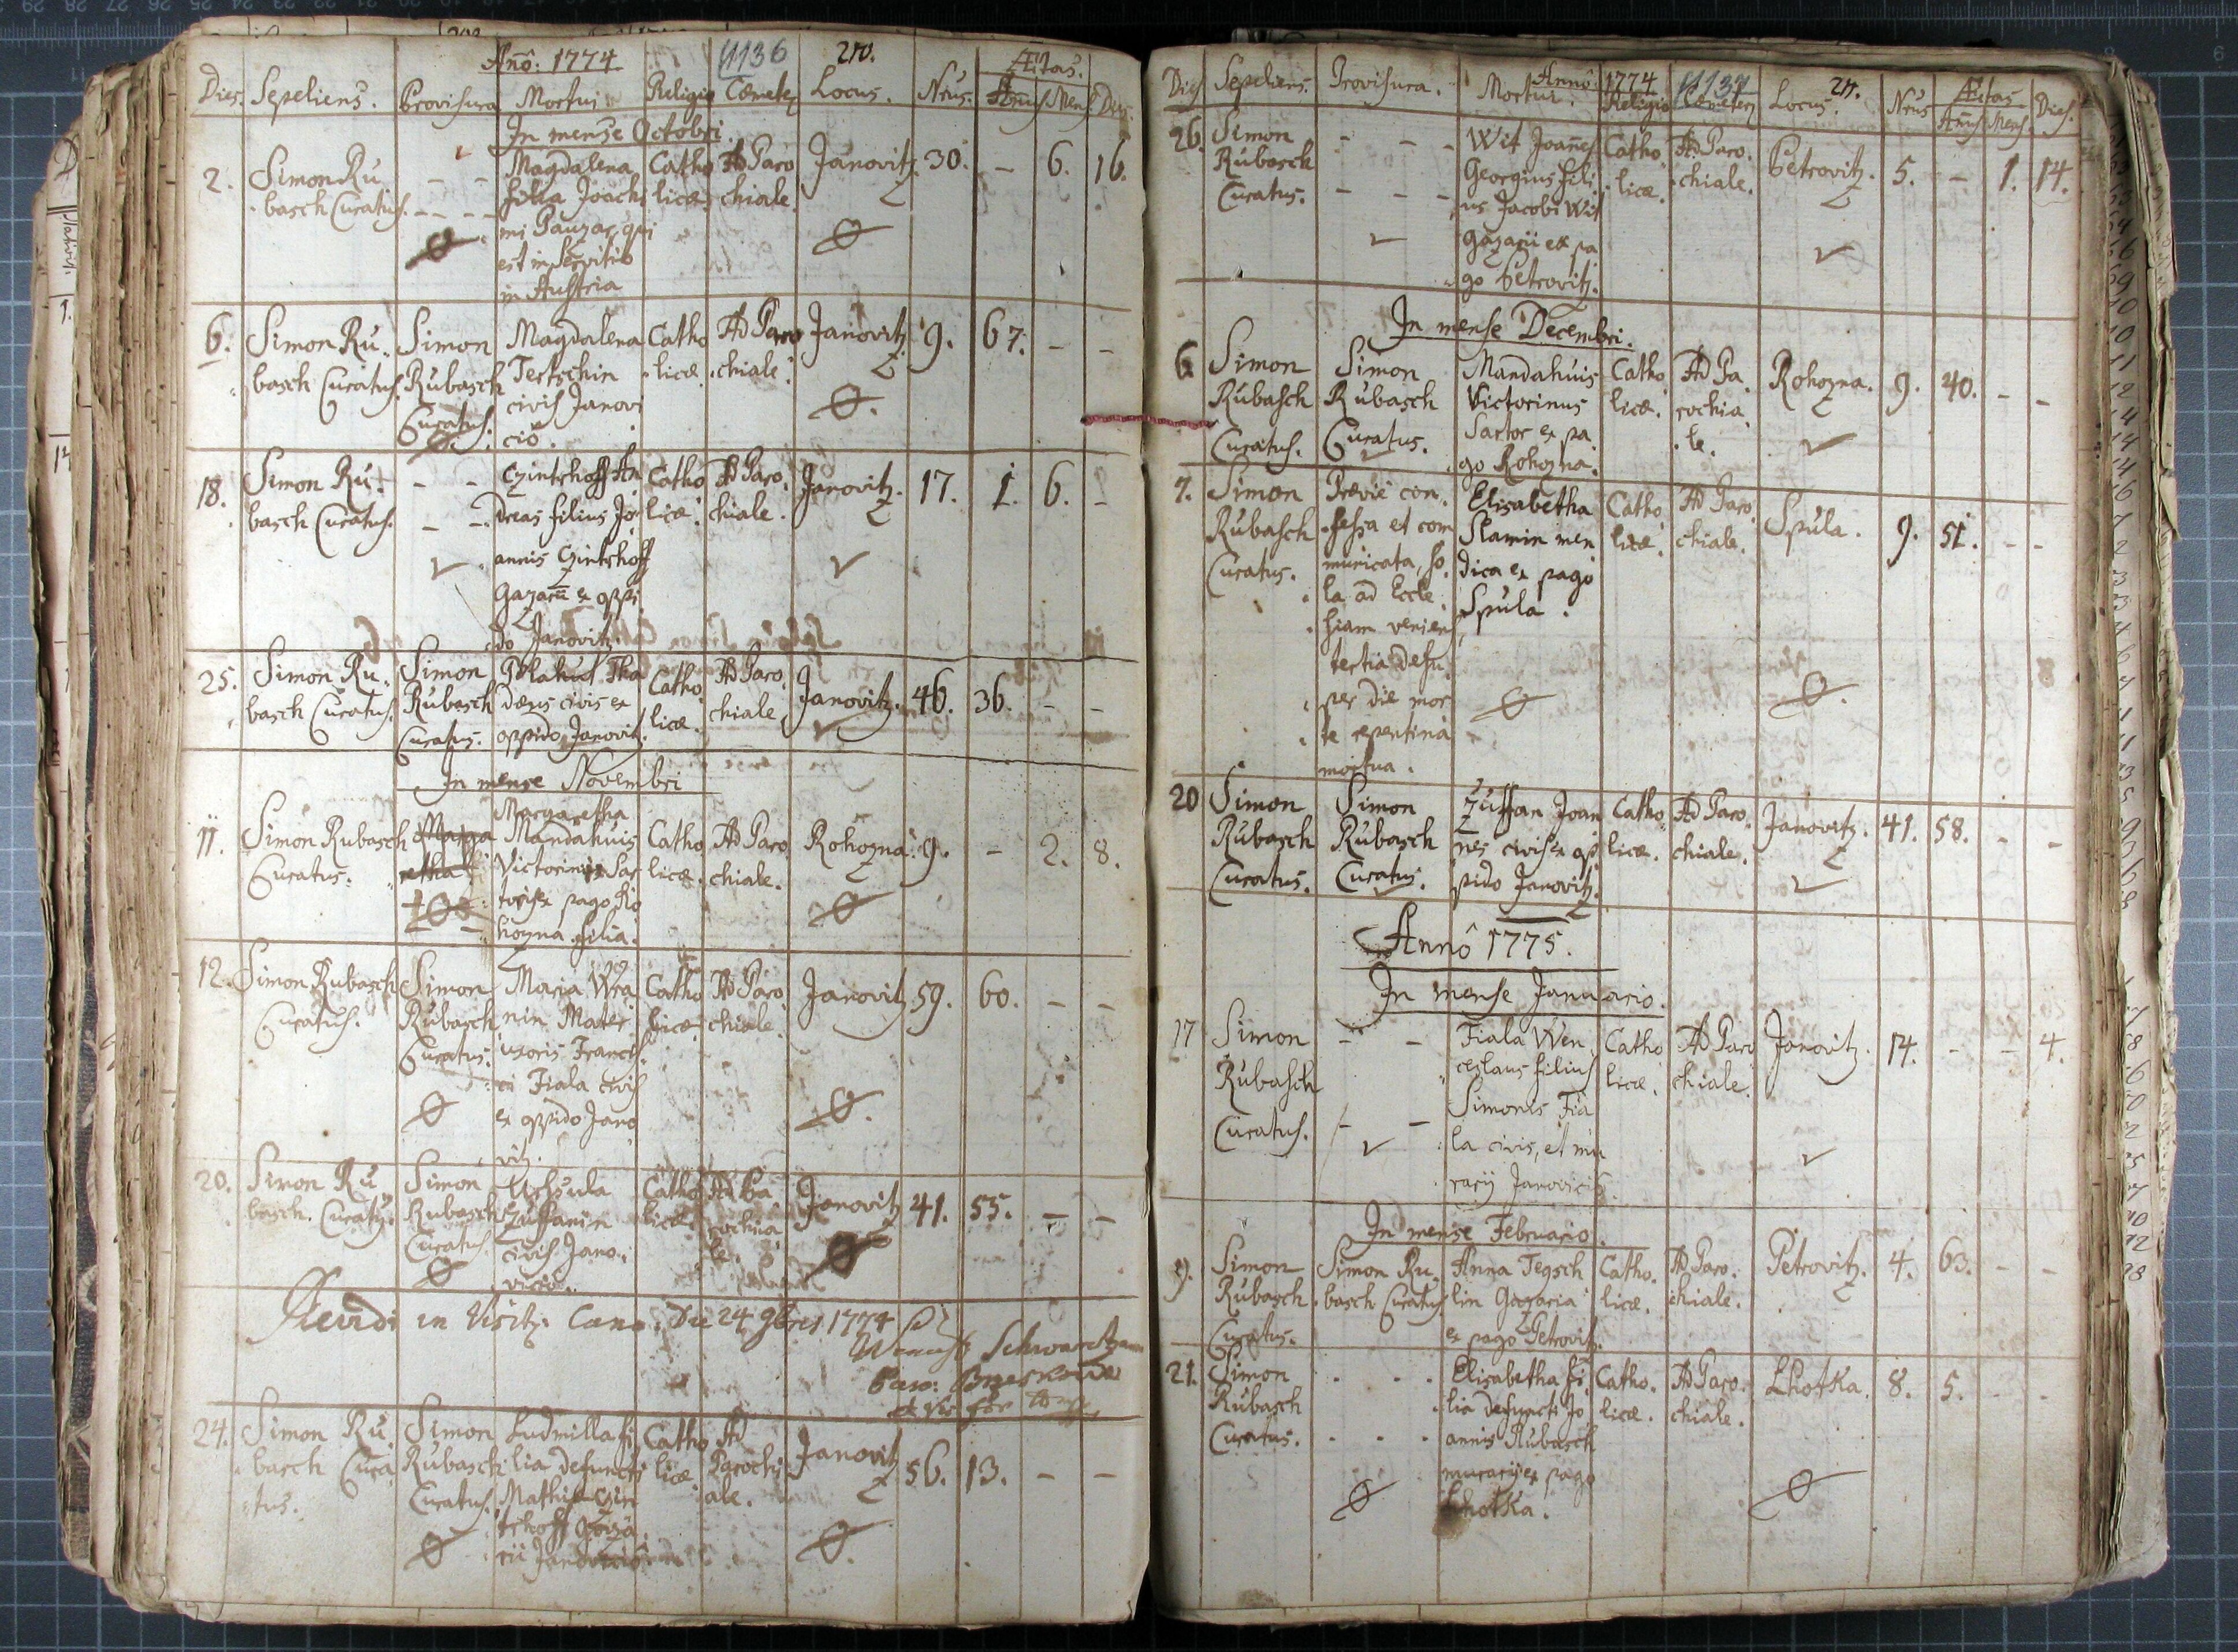 Añô: 1774
1136
210.
Ætas.
Dies. Sepeliens. Provisura Mortui Religio Cæmeter Locus. Nrus. Anni Mens. Dies.
In mense Octobri
2. Simon Ru basch Curatus. - - Magdalena filia Joachi mi Pauzar, qui est in Servitio in Austria Catho licæ. Ad Paro chiale. Janovitz. 30. - 6. 16.
6. Simon Ru. basch Curatus. Simon Rubasch Curatus. Magdalena Tertschin civis Janovi ciô. Catho licæ. Ad Paro chiale. Janovitz. 9. 67. - -
18. Simon Ru. basch Curatus. - - Czintzhoff An dreas filius Jo annis Czintzhoff Gazarii ex oppi do Janovitz. Catho licæ. Ad Paro. chiale. Janovitz. 17. 1. 6. -
25. Simon Ru. basch Curatus. Simon Rubasch Curatus. Tha dæus civis ex oppido Janovitz. Catho licæ. Ad Paro. chiale Janovitz. 46. 36. - -
In mense Novembri
11. Simon Rubasch Curatus. Marga retha Margaretha Mandahuis Victorini Sar toris ex pago Ro hozna filia. Catho licæ. Ad Paro. chiale. Rohozna. 9. - 2. 8.
12. Simon Rubasch Curatus. Simon Rubasch Curatus. Maria Wra nin Mater uxoris Francis ci Fiala civis ex oppido Jano vitz. Catho licæ. Ad Paro chiale. Janovitz 59. 60. - -
20. Simon Ru basch. Curatus. Simon Rubasch Curatus. Urssula Zuffanin civis Jano. viciô. Catho licæ. Ad Pa rochia le. Janovitz 41. 55. - -
in Visit. Cano. Die 24 9bris 1774
Schwartz
Paro:
24. Simon Ru basch Cura tus. Simon Rubasch Curatus. Ludmilla fi lia defuncti Mathiæ Czin tzhoff Gaza. rii Catho licæ. Ad Parochi ale. Janovitz 56. 13. - -
Annô 1774
1137
211.
Ætas
Dies Sepeliens. Provisura. Mortui. Religio Cæmeter Locus. Nrus Anni Mens. Dies.
26. Simon Rubasch Curatus. - - - Wit Joañes Georgius fili us Jacobi Wit Gazarii ex pa go Petrovitz. Catho licæ. Ad Paro. chiale. Petrovitz. 5. - 1. 14.
In mense Decembri.
6 Simon Rubasch Curatus. Simon Rubasch Curatus. Mandahuis Victorinus Sartor ex pa go Rohozna. Catho licæ. Ad Pa rochia le. Rohozna. 9. 40. - -
7. Simon Rubasch Curatus. Prævie con. fessa et com municata, so la ad Eccle. siam veniens, tertia desu per die mor te repentina mortua. Elisabetha Slamin men dica ex pago Spula. Catho licæ. Ad Paro chiale. Spula. 9. 51. - -
20 Simon Rubasch Curatus. Simon Rubasch Curatus. Zuffan Joan nes civis ex op pido Janovitz. Catho licæ. Ad Paro. chiale. Janovitz. 41. 58. - -
Annô 1775.
In mense Januario.
17 Simon Rubasch Curatus. - - Fiala Wen ceslaus filius Simonis Fia la civis, et mu rarij Janovicii. Catho licæ. Ad Paro chiale. Janovitz. 14. - - 4.
In mense Februario.
9. Simon Rubasch Curatus. Simon Ru. basch Curatus Anna Tegsch lin Gazaria ex pago Petrovitz. Catho. licæ. Ad Paro. chiale. Petrovitz. 4. 63. - -
21. Simon Rubasch Curatus. - - - Elisabetha fi lia defuncti Jo annis Rubasch murarij ex pago Lhotka. Catho. licæ. Ad Paro. chiale. Lhotka. 8. 5. - -